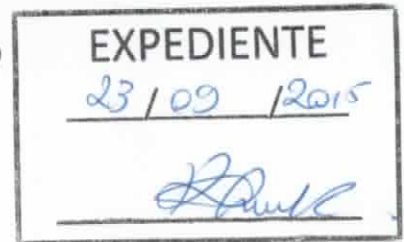 EXPEDIENTE
23 / 09 / 2015